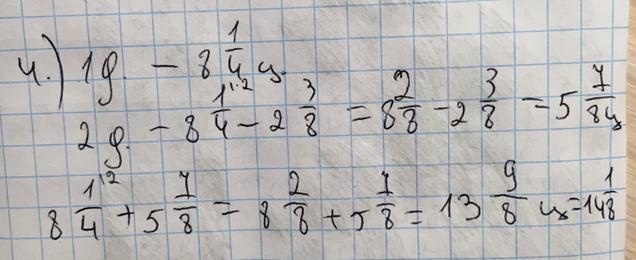 4.) 1д. – 8 1/4 ц.
2д. – 8 1/4 ·2 – 2 3/8 = 8 2/8 – 2 3/8 = 5 7/8 ц
8 1/4 ·2 + 5 7/8 = 8 2/8 + 5 7/8 = 13 9/8 ц = 14 1/8